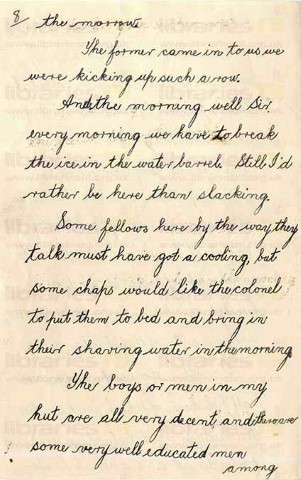 8 the morrow.
The former came in to us we
were kicking up such a row.
And the morning well Sir.
every morning we have to break
the ice in the water barrel. Still I'd
rather be here than slacking.
Some fellows here by the way they
talk must have got a cooling, but
some chaps would like the colonel
to put them to bed and bring in
their shaving water in the morning
The boys or men in my
hut are all very decent and there are
some very well educated men
among